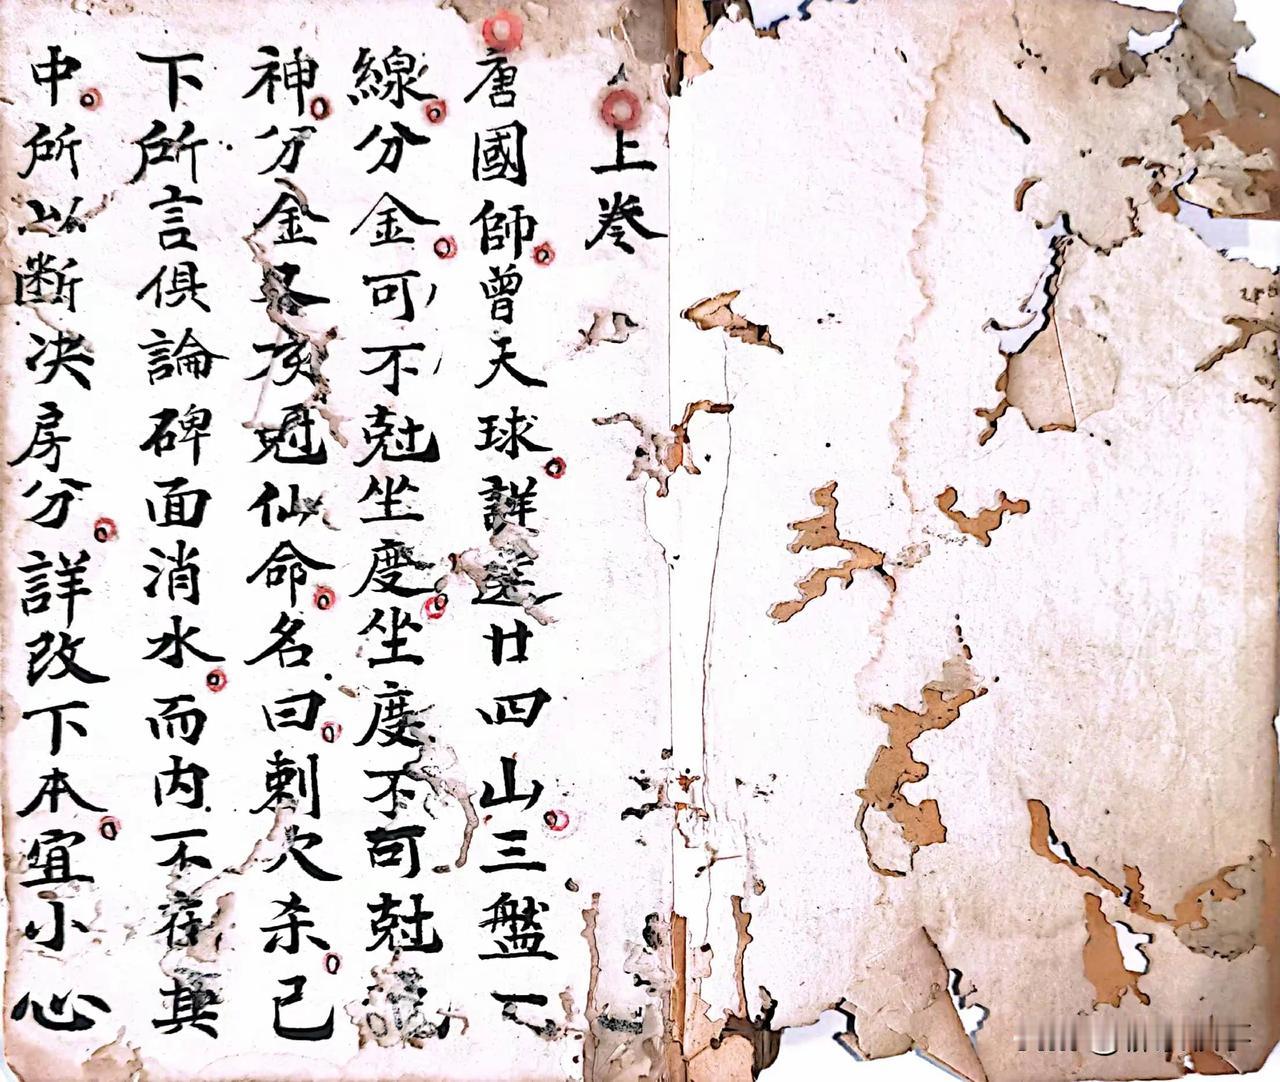 上卷
唐國師曾天球詳選廿四山三盤一
線分金可不尅坐度坐度不可尅
神分金尅仙命名曰刺穴杀已
下所言俱論碑面消水而内不在其
中所以断决房分詳改下本宜小心